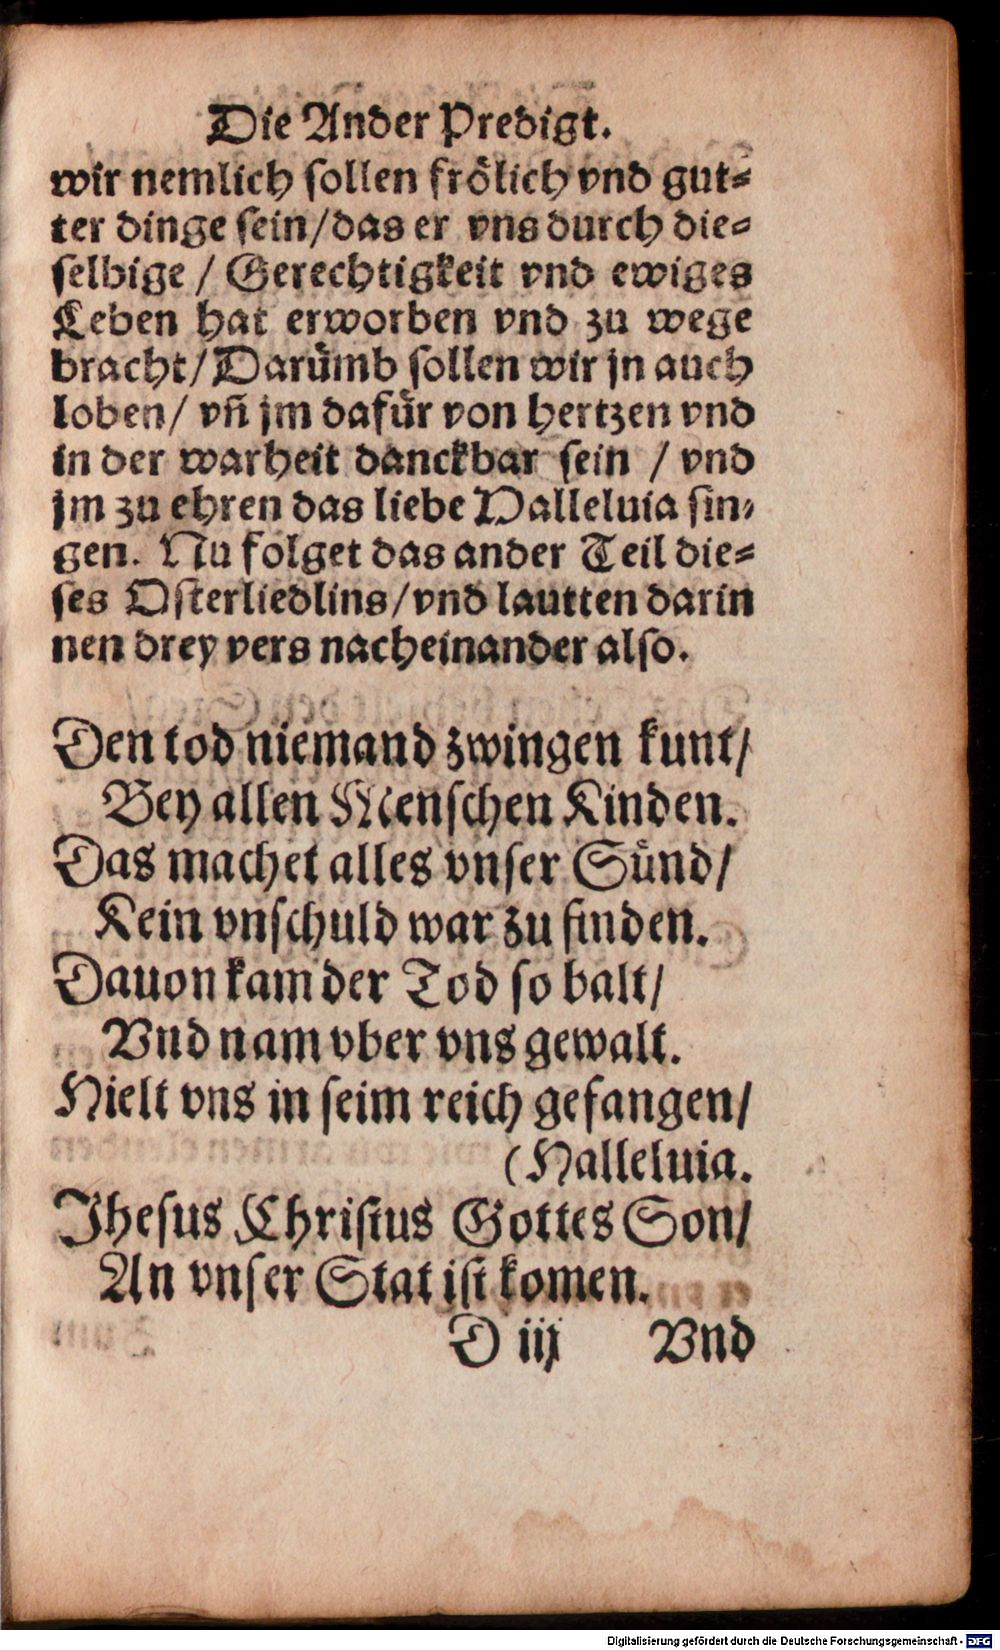 Die Ander Predigt.
wir nemlich ſollen froͤlich vnd gut⸗
ter dinge ſein/das er vns durch die⸗
ſelbige / Gerechtigkeit vnd ewiges
Leben hat erworben vnd zu wege
bracht/Daruͤmb ſollen wir jn auch
loben/ vñ jm dafuͤr von hertzen vnd
in der warheit danckbar ſein / vnd
jm zu ehren das liebe Halleluia ſin⸗
gen. Nu folget das ander Teil die⸗
ſes Oſterliedlins/vnd lautten darin
nen drey vers nacheinander alſo.
Den tod niemand zwingen kunt/
Bey allen Menſchen Kinden.
Das machet alles vnſer Suͤnd/
Kein vnſchuld war zu finden.
Dauon kam der Tod ſo balt/
Vnd nam vber vns gewalt.
Hielt vns in ſeim reich gefangen/
(Halleluia.
Jheſus Chriſtus Gottes Son/
An vnſer Stat iſt komen.
D iij Vnd
Digitalisierung gefördert durch die Deutsche Forschungsgemeinschaft - DFG